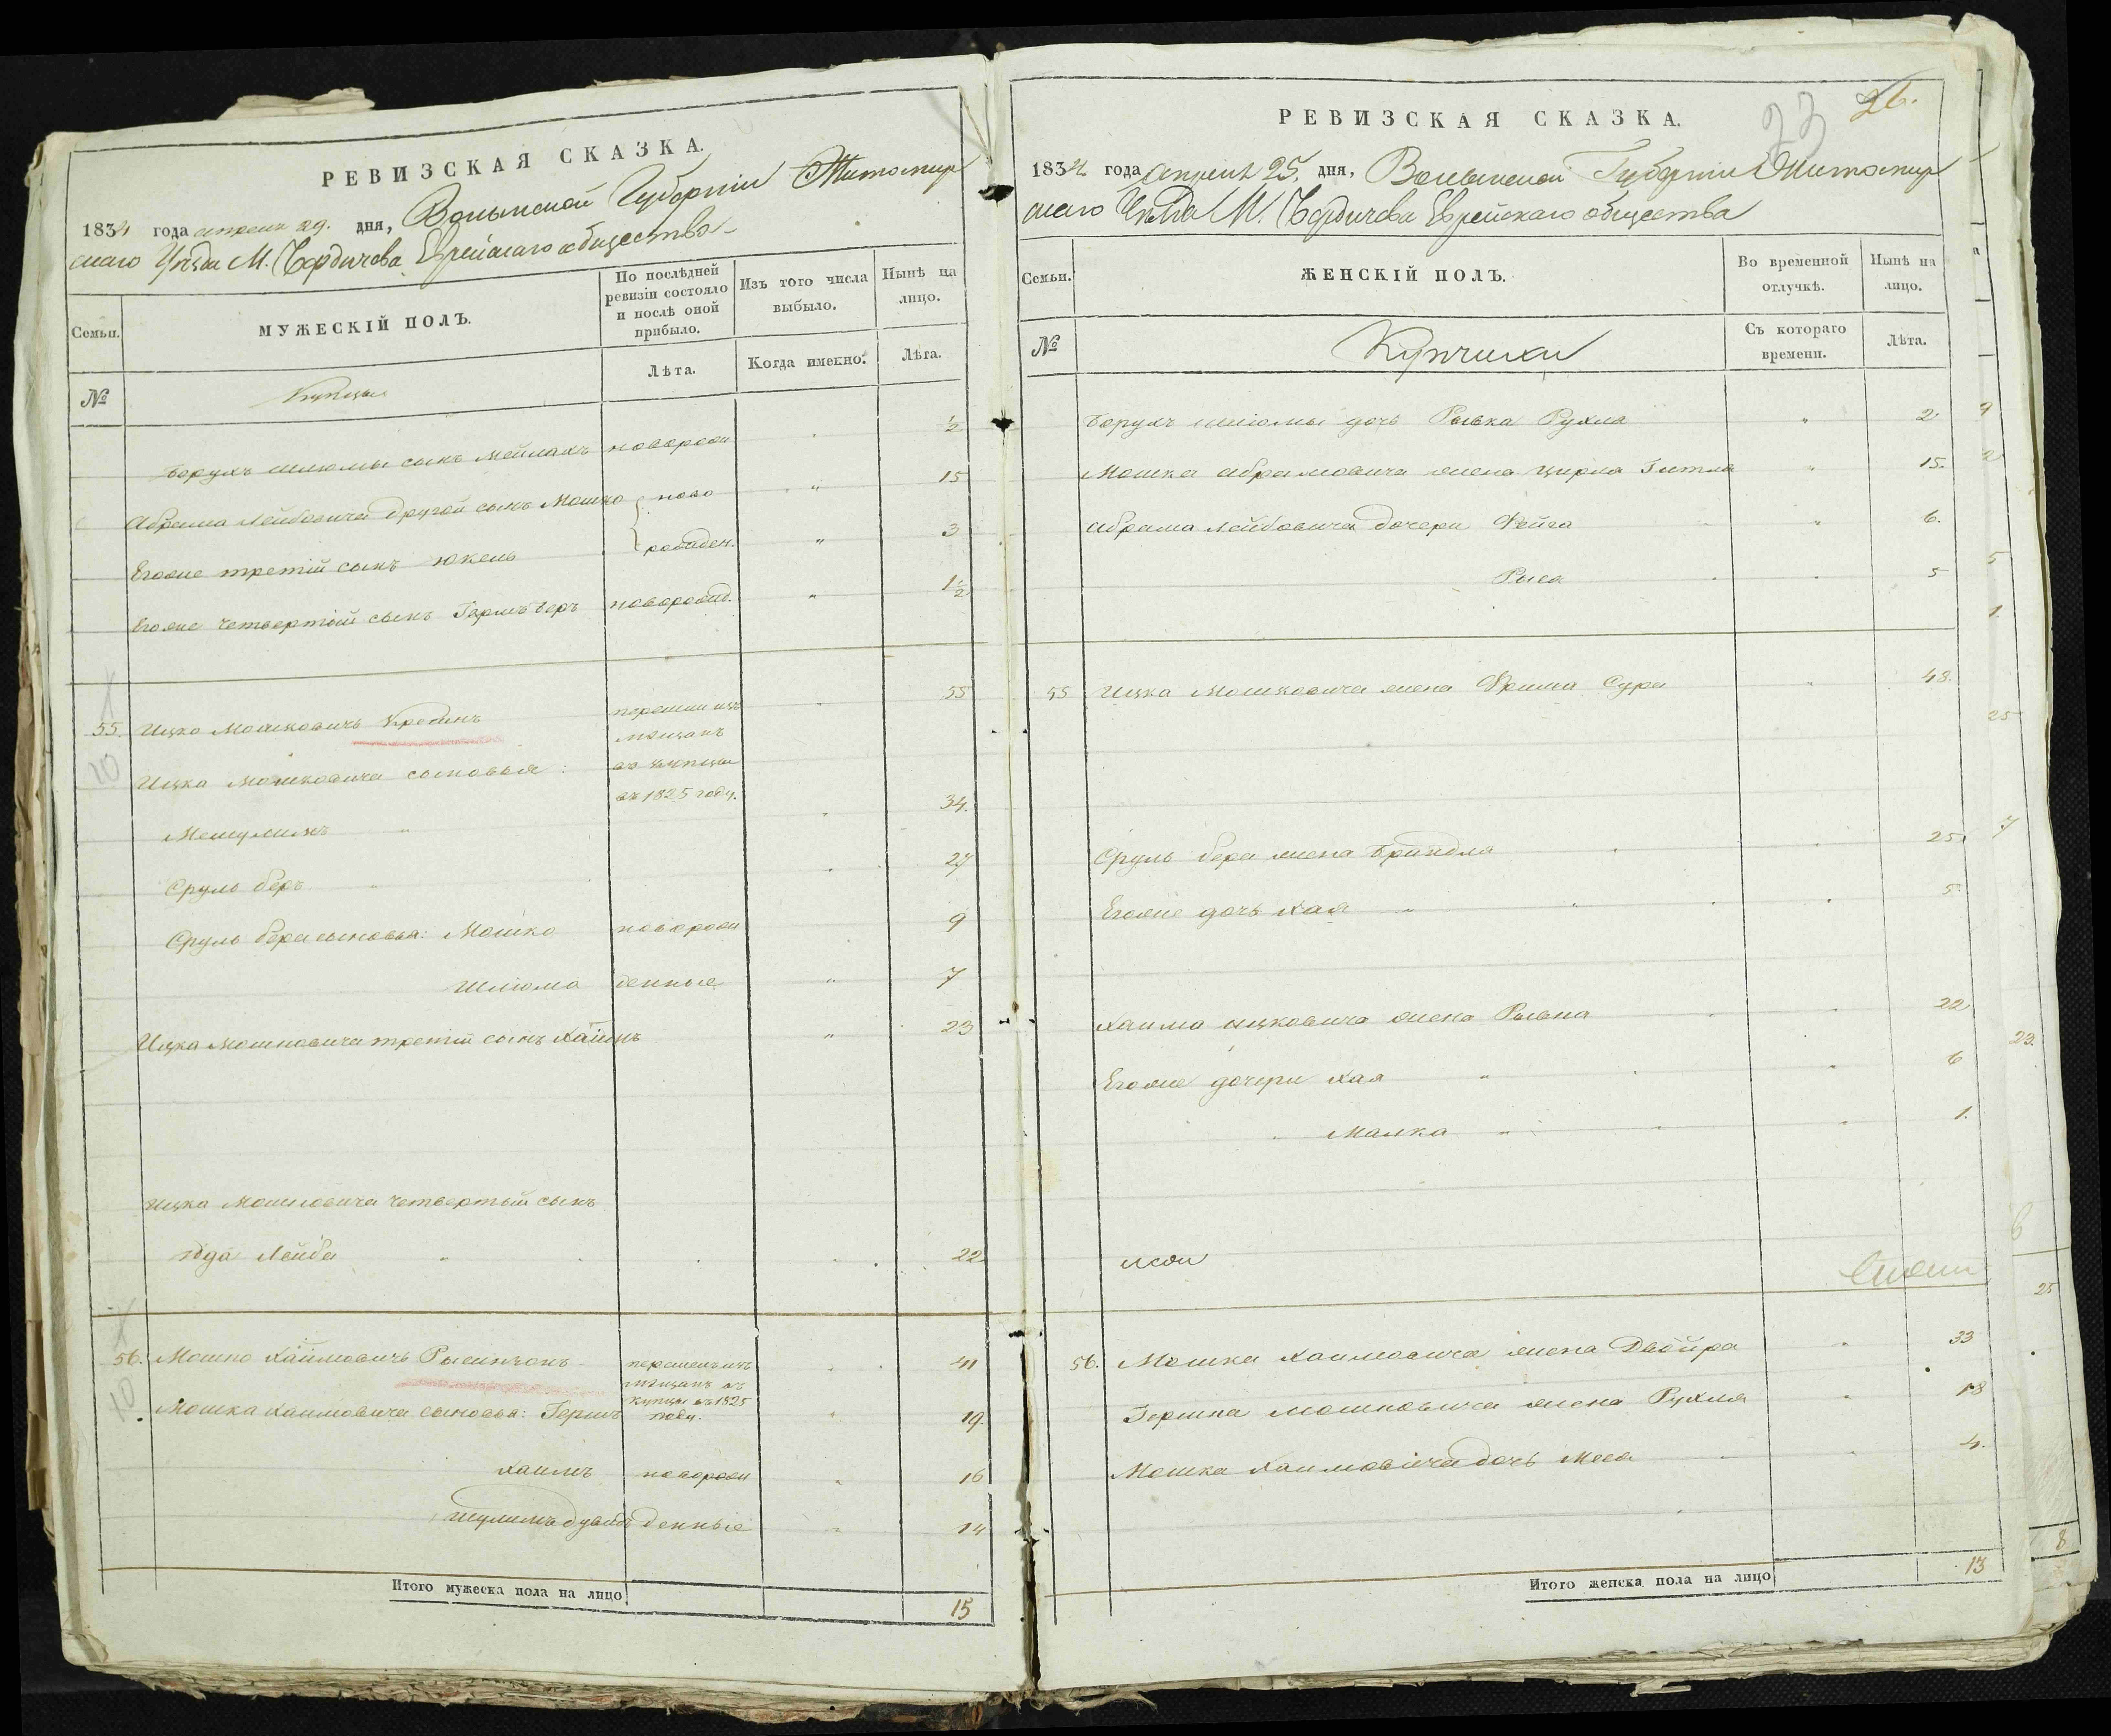 РЕВИЗСКАЯ СКАЗКА.
1834 года апреля 29. дня, Волынской Губернии Житомир
скаго Уезда М. Бердичева Еврейскаго общества
Семьи.
МУЖЕСКІЙ ПОЛЪ.
По послѣдней ревизіи состояло и послѣ оной прибыло.
Изъ того числа выбыло.
Нынѣ на лицо.
№
Купцы
Лѣта.
Когда именно.
Лѣта.
Борухъ шлюмы сынъ Мейлахъ новорож 1/2
Абрама Лейбовича другой сынъ Мошко ново 15
Егоже третій сынъ Юкель рожден. 3
Егоже четвертой сынъ Гершъ Беръ новорожд. 1 1/2
55. Ицко Мошковичъ 55
перешли изъ
мещанъ
Ицка Мошковича сыновья:
въ купцы
въ 1825 году.
34.
Сруль Беръ 27
Сруль Бера сыновья: Мошко новорож 9
Шлюома денные 7
Ицка Мошковича третій сынъ Хаимъ 23
Ицка Мошковича четвертый сынъ
Юда Лейба 22
56. Мошко Хаимовичъ 41
мещанъ въ
купцы въ 1825
году.
Мошка Хаимовича сыновья: Гершъ 19.
10
Хаимъ новорож 16
денные 14
Итого мужеска пола на лицо 15
РЕВИЗСКАЯ СКАЗКА.
23
26.
1834 года апреля 25. дня, Волынской Губернии Житомир
скаго Уезда М. Бердичева Еврейскаго общества
Семьи.
ЖЕНСКІЙ ПОЛЪ.
Во временной отлучкѣ.
Нынѣ на лицо.
№
Купчихи
Съ котораго времени.
Лѣта.
Борухъ шлюмы дочь Рывка Рухля 2
Мошка Абрамовича жена Цирля Гитля 15.
Абрама Лейбовича дочери Фейга 6.
Рыса 5
55 Ицка Мошковича жена Фрима Сура 48.
Сруль Бера жена Брындля 25
Егоже дочь Хая 5.
Хаима Ицковича жена Рывка 22
Егоже дочери Хая 6
Малка 1.
56. Мошка Хаимовича жена Двойра 33
Гершка Мошковича жена Рухля 18
Мошка Хаимовича дочь Меся 4.
Итого женска пола на лицо 13